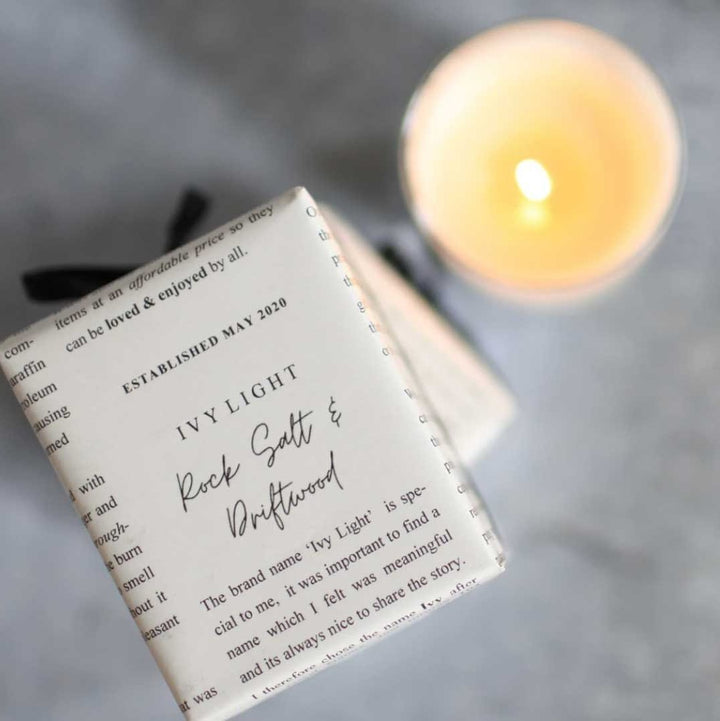 items at an affordable price so they
can be loved & enjoyed by all.
ESTABLISHED MAY 2020
IVY LIGHT
Rock Salt &
Driftwood
The brand name ‘Ivy Light’ is spe-
cial to me, it was important to find a
name which I felt was meaningful
and its always nice to share the story.
I therefore chose the name Ivy after
com-
araffin
roleum
ausing
med
d with
er and
rough-
e burn
smell
hout it
leasant
at was